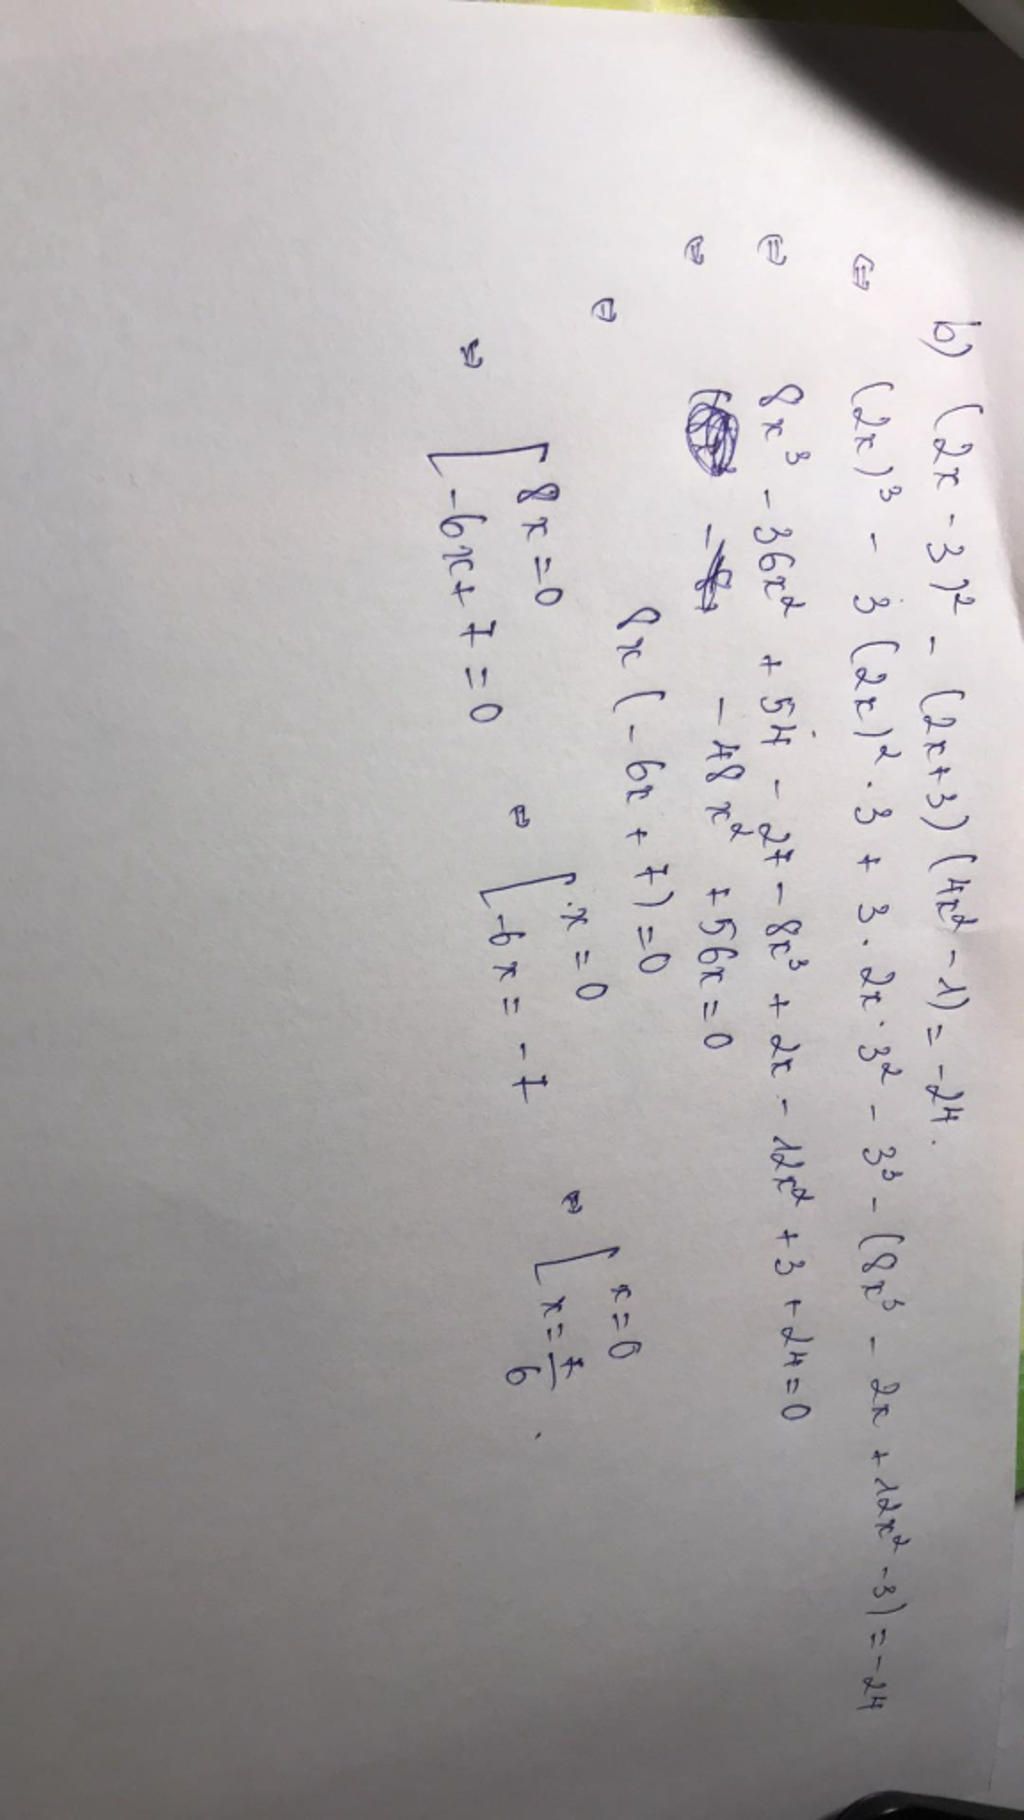 b) (2x - 3)² - (2x+3)(4x² - 1) = -24.
⇔ (2x)³ - 3(2x)² . 3 + 3 . 2x . 3² - 3³ - (8x³ - 2x + 12x² - 3) = -24
⇔ 8x³ - 36x² + 54 - 27 - 8x³ + 2x - 12x² + 3 + 24 = 0
⇔ - 48x² + 56x = 0
⇔ 8x(-6x + 7) = 0
⇔ [ 8x = 0 ⇔ [ x = 0 ⇔ [ x = 0
-6x + 7 = 0 -6x = -7 x = 7/6 .